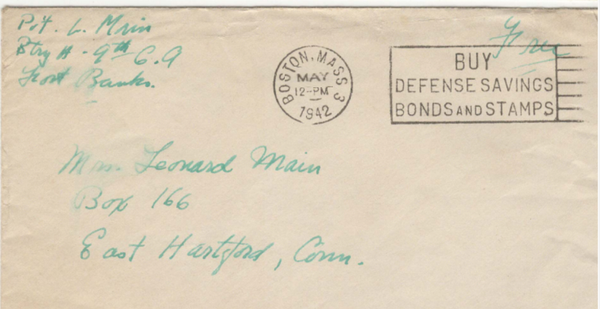 Pvt. L. Main
Btry H - 9th C.A
Fort Banks.
Free
BOSTON, MASS
MAY 3
12-PM
1942
BUY
DEFENSE SAVINGS
BONDS AND STAMPS
Mrs. Leonard Main
Box 166
East Hartford, Conn.